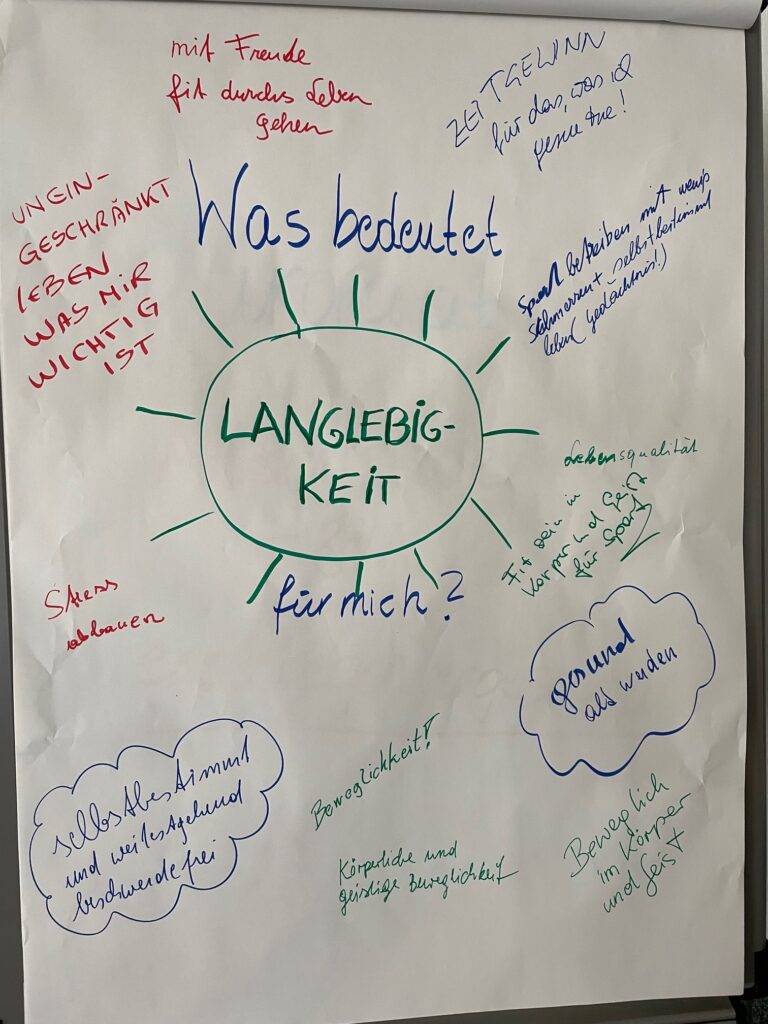 mit Freude
fit durchs Leben
gehen
ZEITGEWINN
für das, was ich
gerne tue!
UNEIN-
GESCHRÄNKT
LEBEN
WAS MIR
WICHTIG
IST
Was bedeutet
Sport betreiben mit wenig
Schmerzen + selbstbestimmt
leben (Gedächtnis!)
LANGLEBIG-
KEIT
für mich?
Lebensqualität
Fit sein in
Körper und Geist
für Sport
Stress
abbauen
gesund
alt werden
selbstbestimmt
und weitestgehend
beschwerdefrei
Beweglichkeit!
Körperliche und
geistige Beweglichkeit
Beweglich
im Körper
und Geist